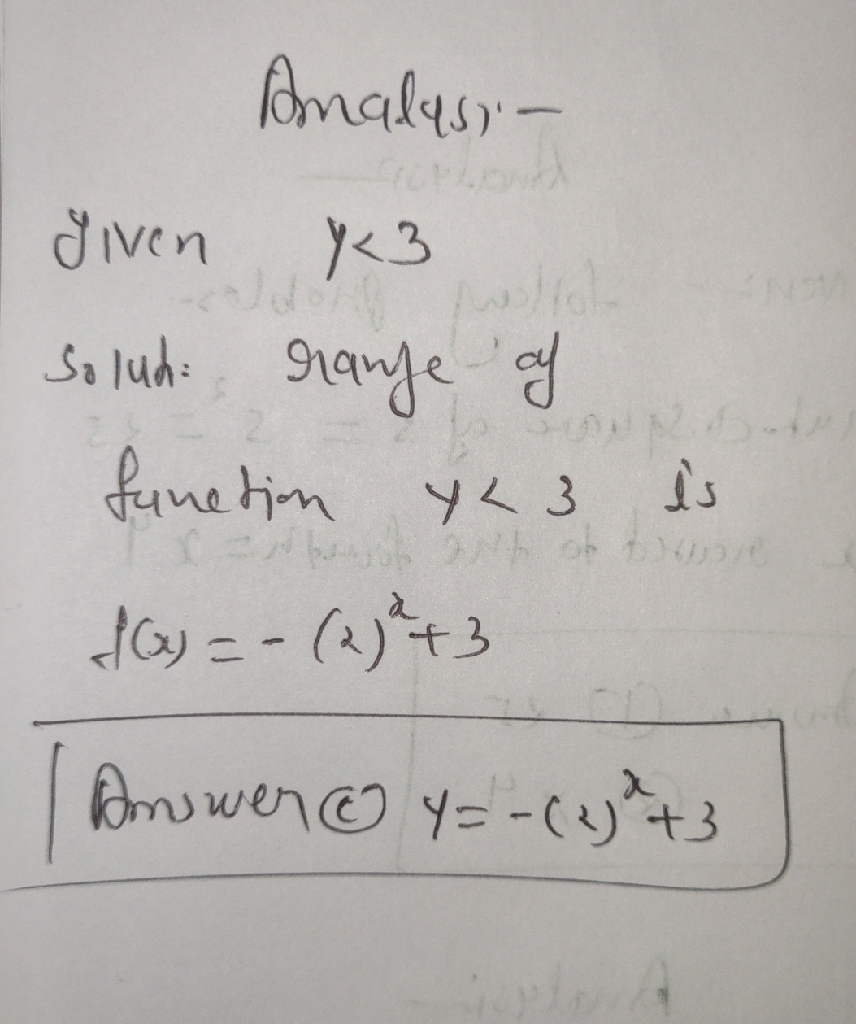 Analysi:-
given y<3
Soluh: range of
function y<3 is
f(x) = -(2)^x+3
Answer (c) y = -(2)^x+3